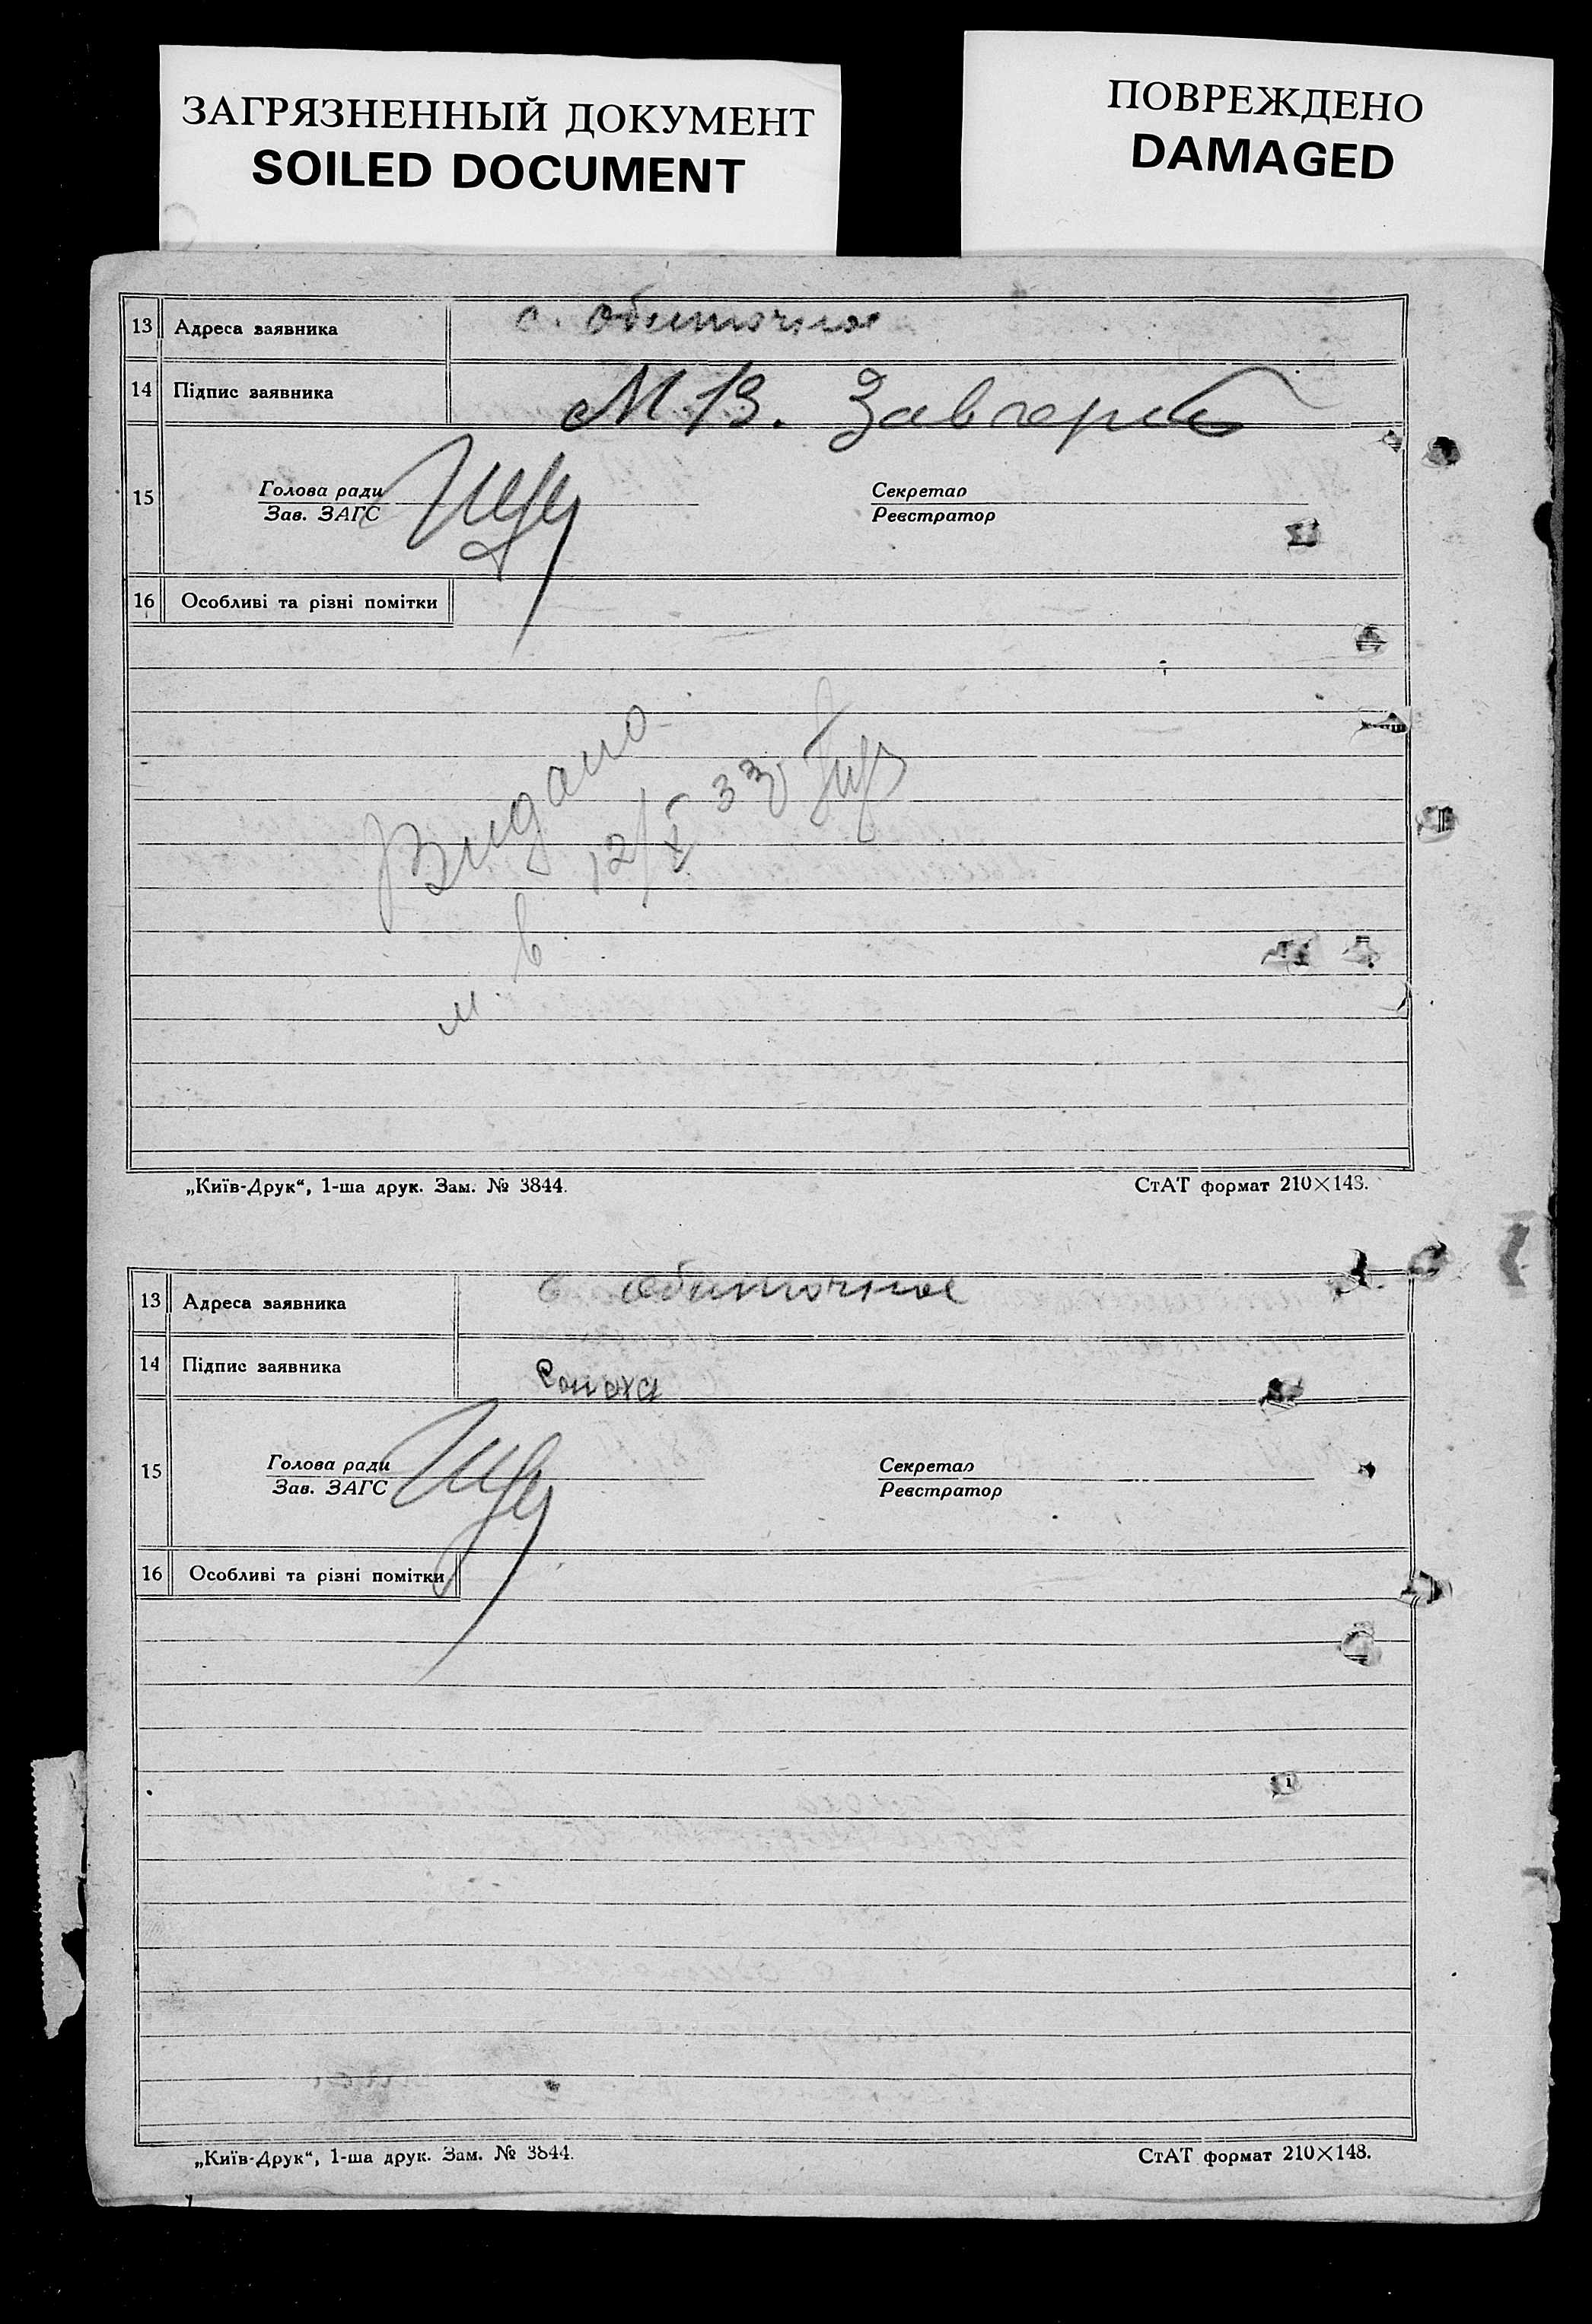 ЗАГРЯЗНЕННЫЙ ДОКУМЕНТ
SOILED DOCUMENT
ПОВРЕЖДЕНО
DAMAGED
13 Адреса заявника с. Обиточное
14 Підпис заявника М. В.
15 Голова ради Секретар
Зав. ЗАГС Реєстратор
16 Особливі та різні помітки
Видано
12/X 33
„Київ-Друк“, 1-ша друк. Зам. № 3844. СтАТ формат 210×148.
13 Адреса заявника с Обиточное
14 Підпис заявника
15 Голова ради Секретар
Зав. ЗАГС Реєстратор
16 Особливі та різні помітки
„Київ-Друк“, 1-ша друк. Зам. № 3844. СтАТ формат 210×148.